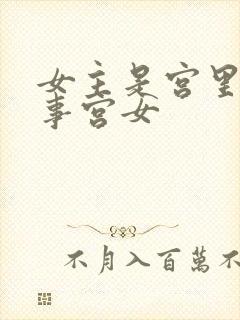 女主是宫里
事宫女
不月入百萬不